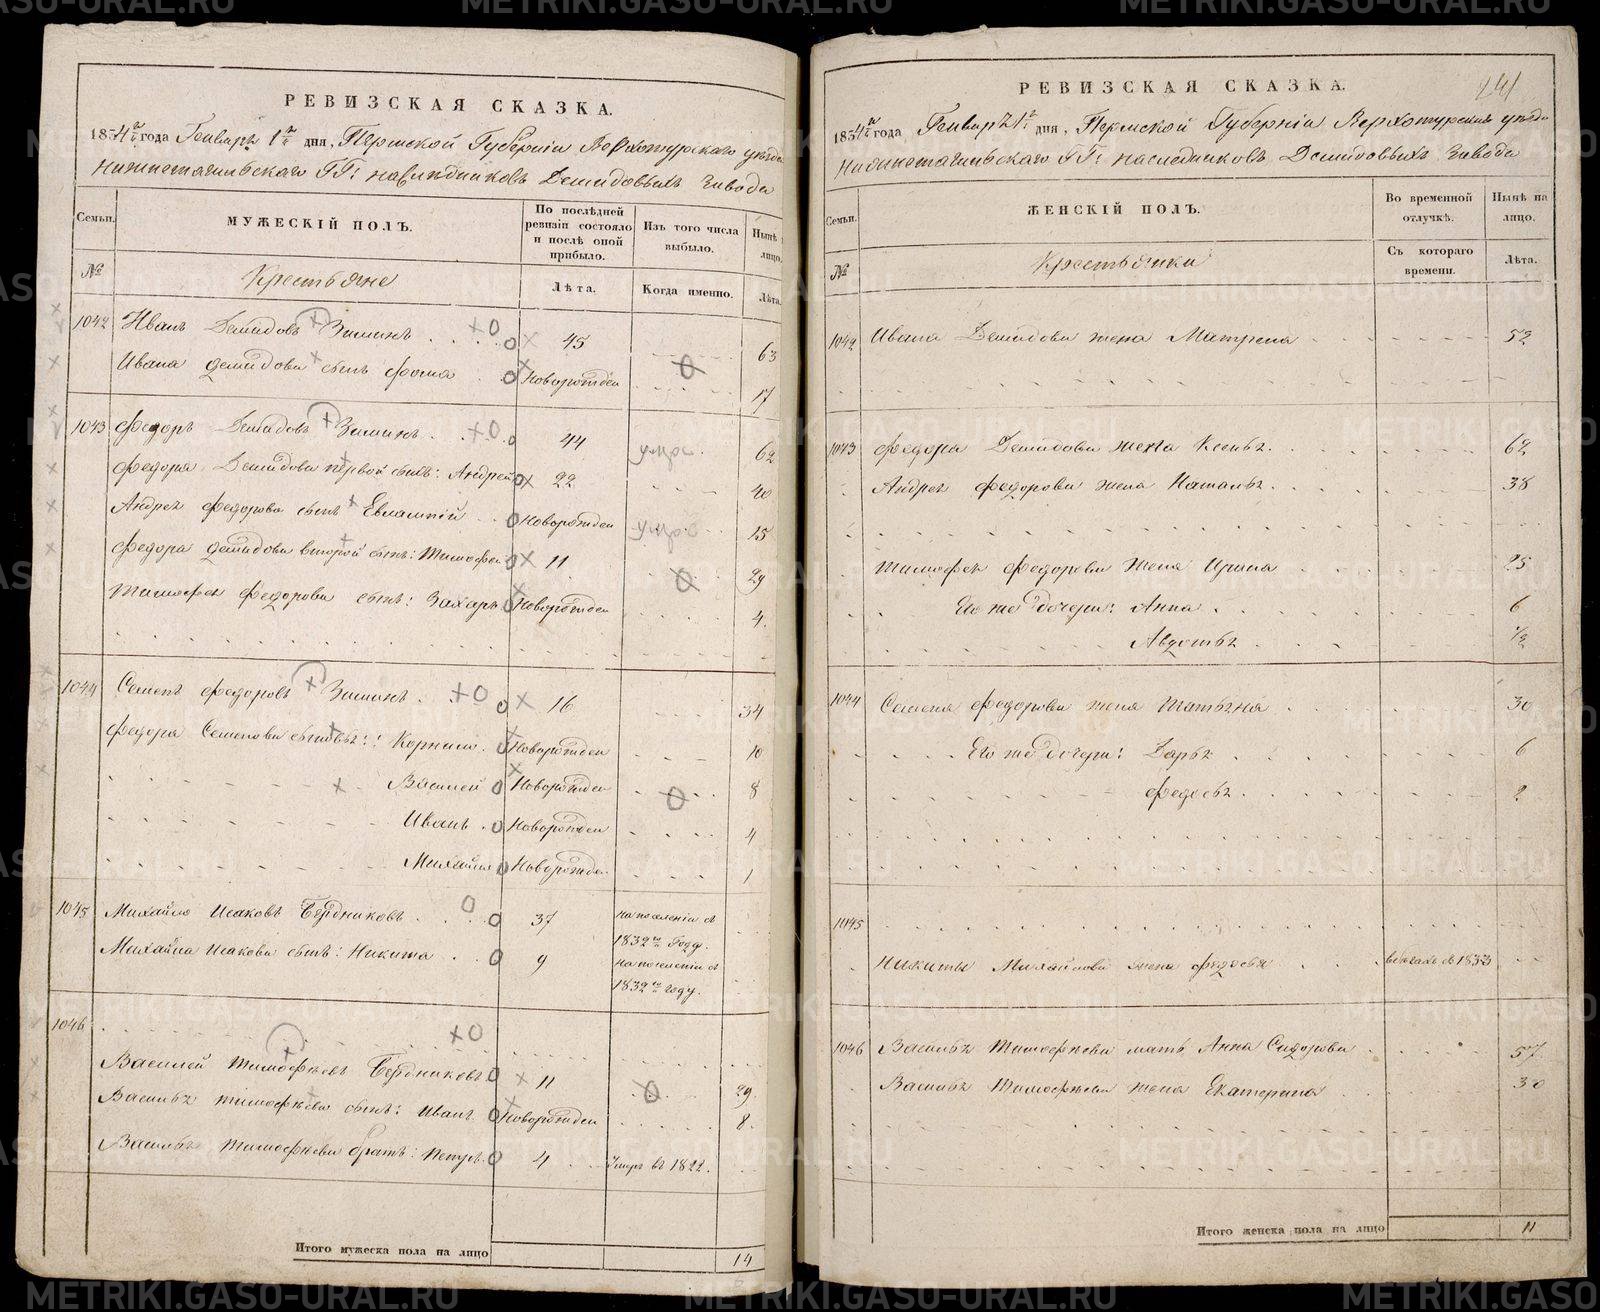 РЕВИЗСКАЯ СКАЗКА.
1834 года Генваря 1 дня, Пермской Губерніи Верхотурскаго уезда
Нижнетагильскаго ГГ: наследниковъ Демидовыхъ Завода
Семьи.
МУЖЕСКІЙ ПОЛЪ.
По послѣдней ревизіи состояло и послѣ оной прибыло.
Изъ того числа выбыло.
Нынѣ
лицо.
№
Крестьяне
Лѣта.
Когда именно.
Лѣта.
1042 Иванъ Демидовъ Зиминъ 45 63
Ивана Демидова сынъ Фома Новорожден 17
1043 Федоръ Демидовъ Зиминъ 44 62
Федора Демидова первой сынъ: Андрей 22 40
Андрея Федорова сынъ Евлампій Новорожден 15
Федора Демидова второй сынъ: Тимофей 11 29
Тимофея Федорова сынъ: Захаръ Новорожден 4.
1044 Семенъ Федоровъ Зиминъ 16 34
Семенова сыновья: Корнило Новорожден 10
Василей Новорожден 8
Иванъ Новорожден 4
Михайла Новорожден 1
1045 Михайло Исаковъ Бердниковъ 37 на поселеніи съ 1832 году.
Михайла Исакова сынъ: Никита 9 на поселеніи съ 1832 году.
1046
Василей Тимофѣевъ Бердниковъ 11 29.
Василья Тимофѣева сынъ: Иванъ Новорожден 8.
Василья Тимофѣева братъ: Петръ 4 Умеръ въ 1822.
Итого мужеска пола на лицо 14
241
РЕВИЗСКАЯ СКАЗКА.
1834 года Генваря 1 дня, Пермской Губерніи Верхотурскаго уезда
Нижнетагильскаго ГГ: наследниковъ Демидовыхъ Завода
Семьи.
ЖЕНСКІЙ ПОЛЪ.
Во временной отлучкѣ.
Нынѣ на лицо.
№
Крестьянки
Съ котораго времени.
Лѣта.
1042 Ивана Демидова жена Матрена 52
1043 Федора Демидова жена 62
Андрея Федорова жена Наталья 38
Тимофея Федорова жена Ирина 25
Его же дочери: Анна 6
Авдотья 1/2
1044 Семена Федорова жена Татьяна 30
Его же дочери: Дарья 6
Федосья 2
1045
Никиты Михайлова жена Федосья въ бегахъ съ 1833
1046 Василья Тимофѣева мать Анна Сидорова 57
Василья Тимофѣева жена Екатерина 30
Итого женска пола на лицо 11
METRIKI.GASO-URAL.RU